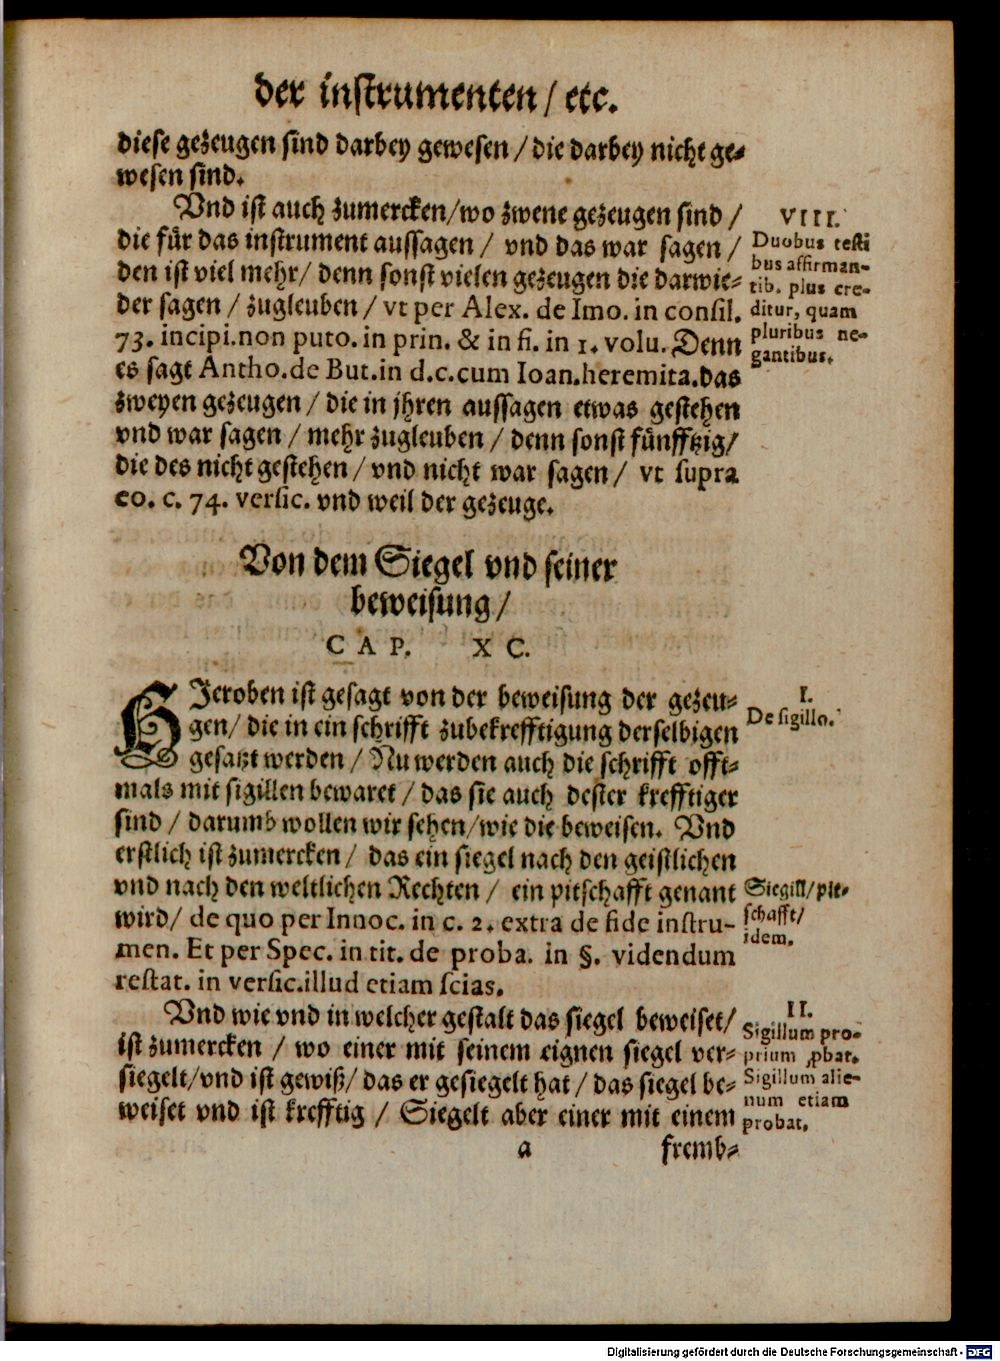 der instrumenten / etc.
diese gezeugen sind darbey gewesen / die darbey nicht ge-
wesen sind.
Vnd ist auch zumercken / wo zwene gezeugen sind /
die für das instrument aussagen / vnd das war sagen /
den ist viel mehr / denn sonst vielen gezeugen die darwie-
der sagen / zugleuben / vt per Alex. de Imo. in consil.
73. incipi. non puto. in prin. & in fi. in 1. volu. Denn
es sagt Antho. de But. in d. c. cum Ioan. heremita. das
zweyen gezeugen / die in jhren aussagen etwas gestehen
vnd war sagen / mehr zugleuben / denn sonst fünfftzig /
die des nicht gestehen / vnd nicht war sagen / vt supra
eo. c. 74. versic. vnd weil der gezeuge.
VIII.
Duobus testi
bus affirman-
tib. plus cre-
ditur, quam
pluribus ne-
gantibus.
Von dem Siegel vnd seiner
beweisung /
CAP. XC.
HIeroben ist gesagt von der beweisung der gezeu-
gen / die in ein schrifft zubekrefftigung derselbigen
gesatzt werden / Nu werden auch die schrifft offt-
mals mit sigillen bewaret / das sie auch dester krefftiger
sind / darumb wollen wir sehen / wie die beweisen. Vnd
erstlich ist zumercken / das ein siegel nach den geistlichen
vnd nach den weltlichen Rechten / ein pitschafft genant
wird / de quo per Innoc. in c. 2. extra de fide instru-
men. Et per Spec. in tit. de proba. in §. videndum
restat. in versic. illud etiam scias.
I.
De sigillo.
Siegill / pit-
schafft /
idem.
Vnd wie vnd in welcher gestalt das siegel beweiset /
ist zumercken / wo einer mit seinem eignen siegel ver-
siegelt / vnd ist gewiß / das er gesiegelt hat / das siegel be-
weiset vnd ist krefftig / Siegelt aber einer mit einem
II.
Sigillum pro-
prium ꝓbat.
Sigillum alie-
num etiam
probat.
a fremb-
Digitalisierung gefördert durch die Deutsche Forschungsgemeinschaft - DFG